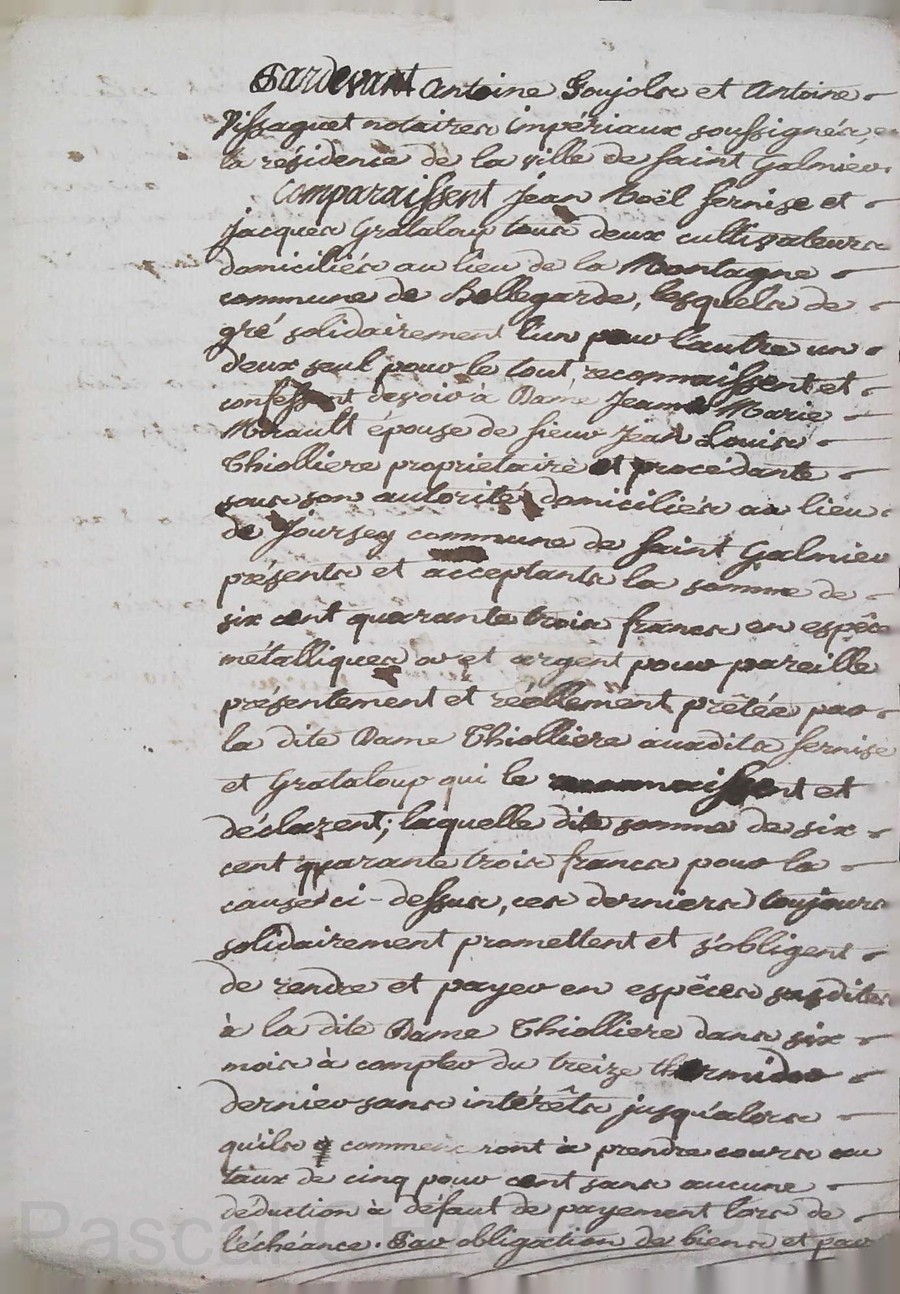 Pardevant Antoine Goujols et Antoine
Vissaguet notaires impériaux soussignés en
la résidence de la ville de Saint Galmier.
Comparaissent Jean Noël Fernise et
Jacques Grataloup tous deux cultivateurs
domiciliés au lieu de la Montagne
commune de Bellegarde, lesquels de
gré solidairement l'un pour l'autre un
d'eux seul pour le tout reconnaissent et
confessent devoir à Dame Jeanne Marie
épouse de Sieur Jean Louis
Thiolliere propriétaire et procédante
sous son autorité, domiciliés au lieu
de Joursey commune de Saint Galmier
présents et acceptants la somme de
six cent quarante trois francs en espèce
métalliques or et argent pour pareille
présentement et réellement prêtée par
la dite Dame Thiolliere auxdits Fernise
et Grataloup qui le reconnaissent et
déclarent; laquelle dite somme de six
cent quarante trois francs pour la
cause ci-dessus, ces derniers toujours
solidairement promettent et s'obligent
de rendre et payer en espèces susdites
à la dite Dame Thiolliere dans six
mois à compter du treize thermidor
dernier sans intérêts jusqu'alors
qu'ils commenceront à prendre cours au
taux de cinq pour cent sans aucune
déduction à défaut de payement lors de
l'échéance. Par obligation de biens et par
Pascal